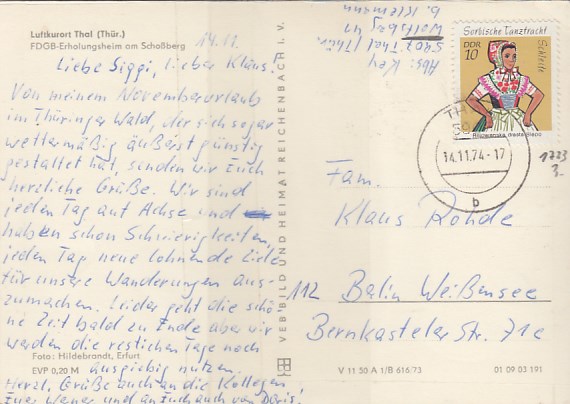 Luftkurort Thal (Thür.)
FDGB-Erholungsheim am Schoßberg
14.11.
Liebe Siggi, lieber Klaus!
Von meinem Novemberurlaub
im Thüringer Wald, der sich sogar
wettermäßig äußerst günstig
gestaltet hat, senden wir Euch
herzliche Grüße. Wir sind
jeden Tag auf Achse und
haben schon Schwierigkeiten,
jeden Tag neue lohnende Ziele
für unsere Wanderungen aus-
zumachen. Leider geht die schö-
ne Zeit bald zu Ende aber wir
werden die restlichen Tage noch
ausgiebig nutzen.
Herzl. Grüße auch an die Kollegen,
Euer Werner und an Euch auch von Doris.
Foto: Hildebrandt, Erfurt
EVP 0,20 M
VEB BILD UND HEIMAT REICHENBACH i. V.
Abs: Key
5907 Thal/Thür.
Wolfsberg 41
b.
Sorbische Tanztracht
Schleife
DDR
10
TH
59
14.11.74-17
b
1723
3.-
Fam.
Klaus Rohde
112 Balin Weißensee
Bernkasteler Str. 71c
V 11 50 A 1/B 616/73
01 09 03 191